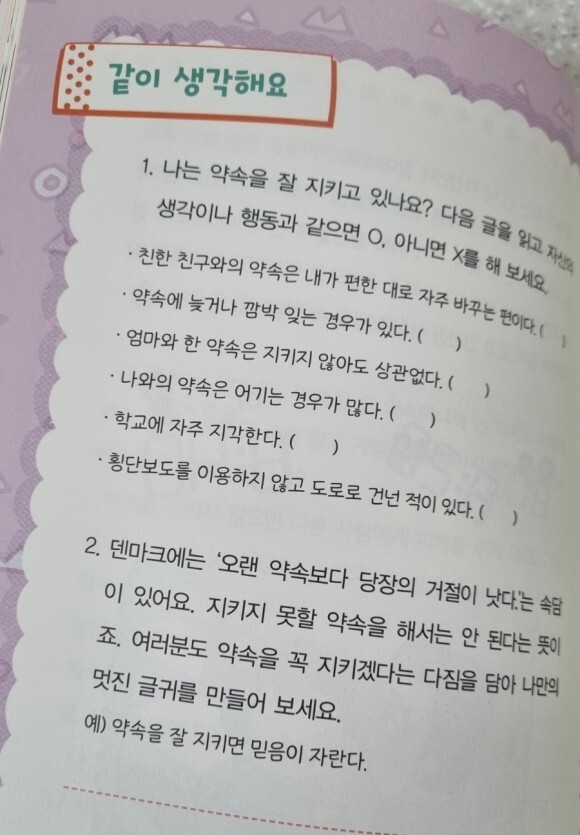 같이 생각해요
1. 나는 약속을 잘 지키고 있나요? 다음 글을 읽고 자신의
생각이나 행동과 같으면 O, 아니면 X를 해 보세요.
· 친한 친구와의 약속은 내가 편한 대로 자주 바꾸는 편이다. (    )
· 약속에 늦거나 깜박 잊는 경우가 있다. (    )
· 엄마와 한 약속은 지키지 않아도 상관없다. (    )
· 나와의 약속은 어기는 경우가 많다. (    )
· 학교에 자주 지각한다. (    )
· 횡단보도를 이용하지 않고 도로로 건넌 적이 있다. (    )
2. 덴마크에는 ‘오랜 약속보다 당장의 거절이 낫다.’는 속담
이 있어요. 지키지 못할 약속을 해서는 안 된다는 뜻이
죠. 여러분도 약속을 꼭 지키겠다는 다짐을 담아 나만의
멋진 글귀를 만들어 보세요.
예) 약속을 잘 지키면 믿음이 자란다.